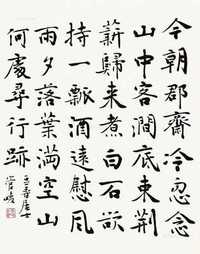 今朝郡齋冷忽念
山中客澗底束荊
薪歸來煮白石欲
持一瓢酒遠慰風
雨夕落葉滿空山
何處尋行跡
居士